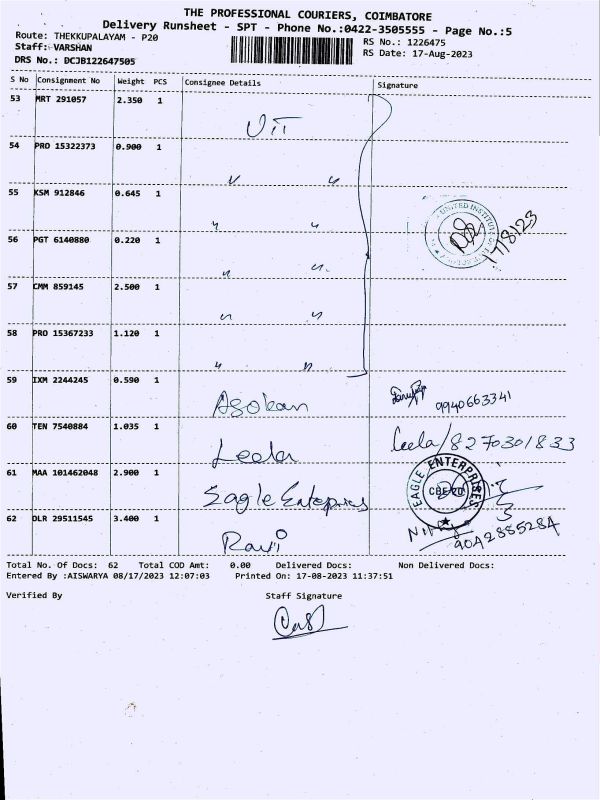 THE PROFESSIONAL COURIERS, COIMBATORE
Delivery Runsheet - SPT - Phone No.:0422-3505555 - Page No.:5
Route: THEKKUPALAYAM - P20
RS No.: 1226475
Staff: VARSHAN
RS Date: 17-Aug-2023
DRS No.: DCJB122647505
S No Consignment No Weight PCS Consignee Details Signature
53 MRT 291057 2.350 1
UIT
54 PRO 15322373 0.900 1
" "
55 KSM 912846 0.645 1
" "
UNITED INSTITUTE
17/8/23
56 PGT 6140880 0.220 1
" "
57 CMM 859145 2.500 1
" "
58 PRO 15367233 1.120 1
" "
59 IXM 2244245 0.590 1
Asokan 9940663341
60 TEN 7540884 1.035 1
Leela Leela/8270301833
61 MAA 101462048 2.900 1
Eagle Enteprises EAGLE ENTERPRISES
62 DLR 29511545 3.400 1
Ravi
Total No. Of Docs: 62 Total COD Amt: 0.00 Delivered Docs: Non Delivered Docs:
Entered By :AISWARYA 08/17/2023 12:07:03 Printed On: 17-08-2023 11:37:51
Verified By Staff Signature